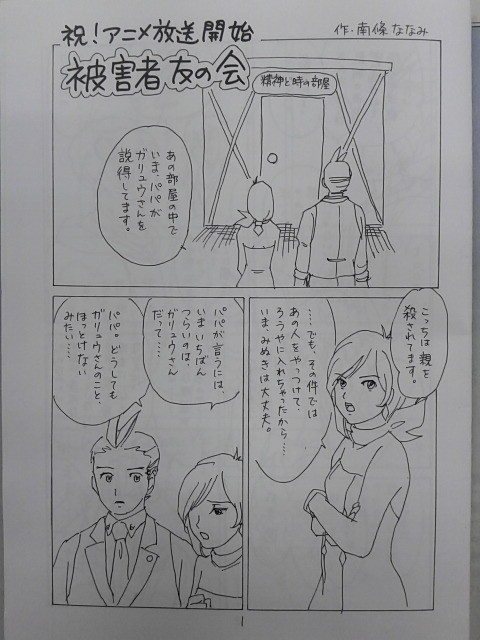 祝！アニメ放送開始
作・南條ななみ
被害者友の会
精神と時の部屋
あの部屋の中で
いま、パパが
ガリュウさんを
説得してます。
こっちは親を
殺されてます。
…でも、その件では
あの人をやっつけて、
ろうやに入れちゃったから……
いま、みぬきは大丈夫。
パパが言うには、
いまいちばん
つらいのは、
ガリュウさん
だって……
パパ。どうしても
ガリュウさんのこと、
ほっとけない
みたい……
1